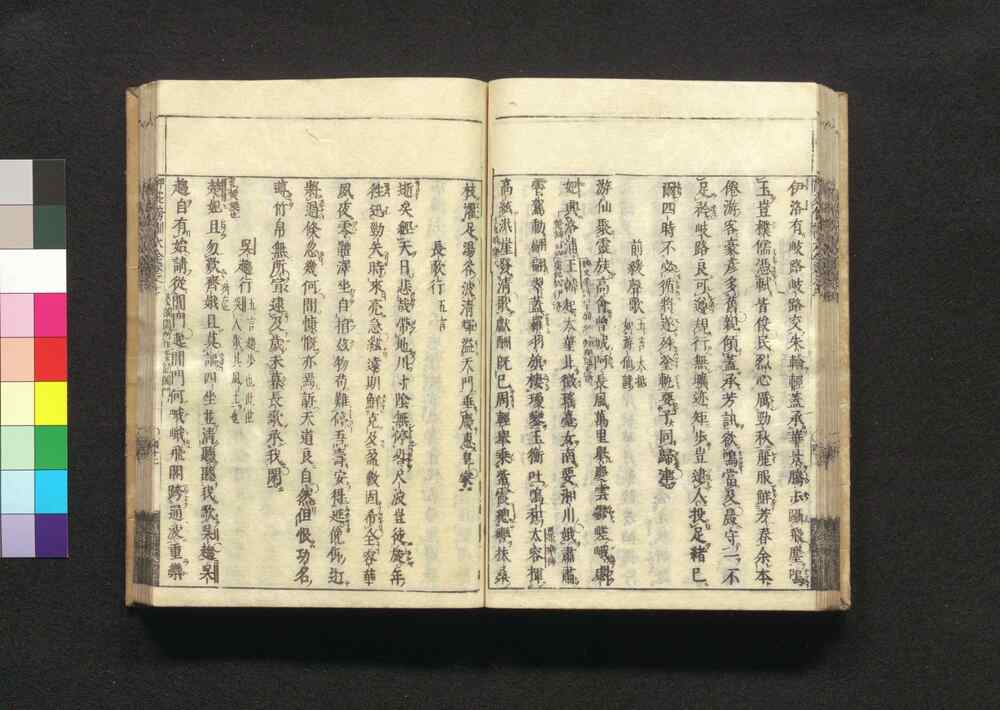 伊洛有岐路岐路交朱輪輕蓋承華景騰步躡飛塵鳴
玉豈樸儒憑軾皆俊民烈心厲勁秋麗服鮮芳春余本
倦游客豪彦多舊親傾蓋承芳訊欲鳴當及晨守一不
足矜岐路良可遵規行無曠迹矩步豈逮人投足緒已
爾四時不必循將遂殊塗軌要子同歸津
前緩聲歌 五言
游仙聚靈族高會曾城阿長風萬里舉慶雲鬱嵯峨宓
妃興洛浦王韓起太華北徵瑤臺女南要湘川娥肅肅
霄駕動翩翩翠蓋羅羽旗棲瓊鸞玉衡吐鳴和太容揮
高絃洪崖發清歌獻酬既已周輕舉乘紫霞揔轡扶桑
枝濯足湯谷波清輝溢天門垂慶惠皇家
長歌行 五言
逝矣經天日悲哉帶地川寸陰無停晷尺波豈徒旋年
往迅勁矢時來亮急絃遠期鮮克及盈數固希全容華
夙夜零體澤坐自捐茲物苟難停吾壽安得延俛仰逝
將過倏忽幾何間慷慨亦焉訴天道良自然但恨功名
薄竹帛無所宣迨及歲未暮長歌承我閑
吳趨行 五言
楚妃且勿歎齊娥且莫謳四坐並清聽聽我歌吳趨吳
趨自有始請從閶門起閶門何峨峨飛閣跨通波重欒